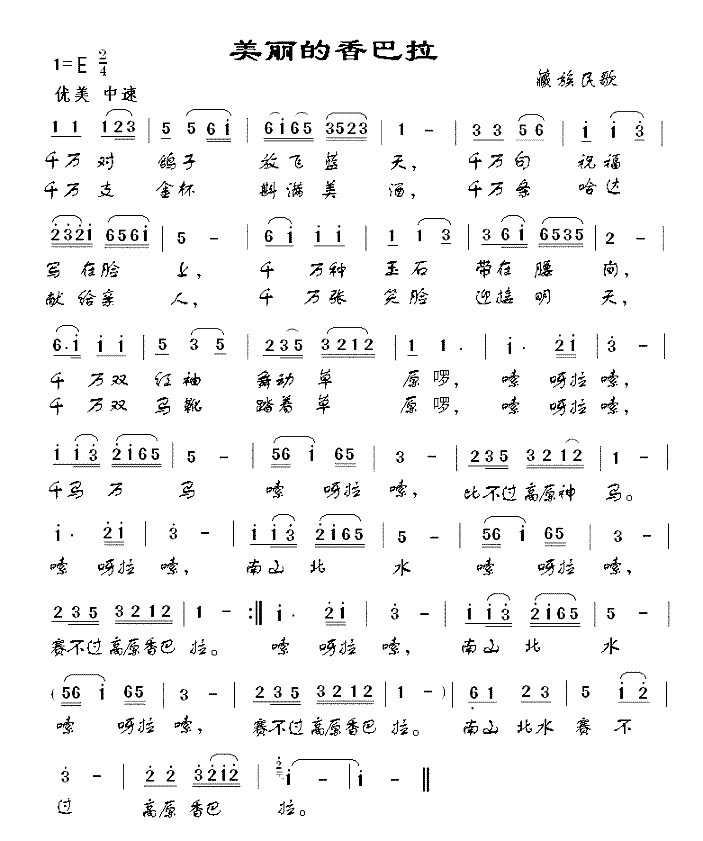 美丽的香巴拉
1=E 2/4
藏族民歌
优美 中速
1 1 1 2 3 | 5 5 6 i | 6 i 6 5 3 5 2 3 | 1 - | 3 3 5 6 | i i 3 |
千万对 鸽子 放飞蓝 天, 千万句 祝福
千万支 金杯 斟满美 酒, 千万条 哈达
2 3 2 i 6 5 6 i | 5 - | 6 i i i | 1 1 3 | 3 6 i 6 5 3 5 | 2 - |
写在脸 上, 千 万种 玉石 带在腰 间,
献给亲 人, 千 万张 笑脸 迎接明 天,
6 . i i i | 5 3 5 | 2 3 5 3 2 1 2 | 1 1 . | i . 2 i | 3 - |
千 万双 红袖 舞动草 原啰, 嗦 呀拉 嗦,
千 万双 马靴 踏着草 原啰, 嗦 呀拉 嗦,
i i 3 2 i 6 5 | 5 - | 5 6 i 6 5 | 3 - | 2 3 5 3 2 1 2 | 1 - |
千马 万 马 嗦 呀拉 嗦, 比不过高原神 马。
i . 2 i | 3 - | i i 3 2 i 6 5 | 5 - | 5 6 i 6 5 | 3 - |
嗦 呀拉 嗦, 南山 北 水 嗦 呀拉 嗦,
2 3 5 3 2 1 2 | 1 - :‖ i . 2 i | 3 - | i i 3 2 i 6 5 | 5 - |
赛不过高原香巴 拉。 嗦 呀拉 嗦, 南山 北 水
( 5 6 i 6 5 | 3 - | 2 3 5 3 2 1 2 | 1 - ) | 6 1 2 3 | 5 i 2 |
嗦 呀拉 嗦, 赛不过高原香巴 拉。 南山 北水 赛 不
3 - | 2 2 3 2 i 2 | 2 i - | i - ‖
过 高原 香巴 拉。